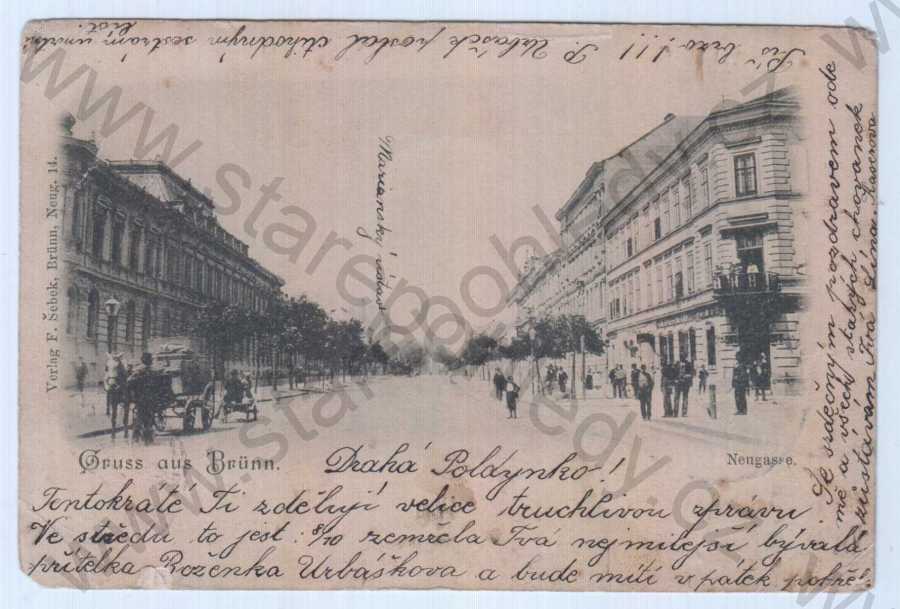 list.
P. Urbášek poslal ctihodným sestrám úmrtní
Piš brzo!!!
Verlag F. Šebek, Brünn, Neug. 14.
Marianský ústav
Gruss aus Brünn.
Neugasse.
Drahá Poldynko!
Tentokráte Ti zděluji velice truchlivou zprávu.
Ve středu to jest 8/10 zemřela Tvá nejmilejší bývalá
přítelka Roženka Urbáškova a bude míti v pátek pohřeb.
Se srdečným pozdravem ode
mě a všech stalých chovanek
zůstávám Tvá Lína
www.starepohledy.cz